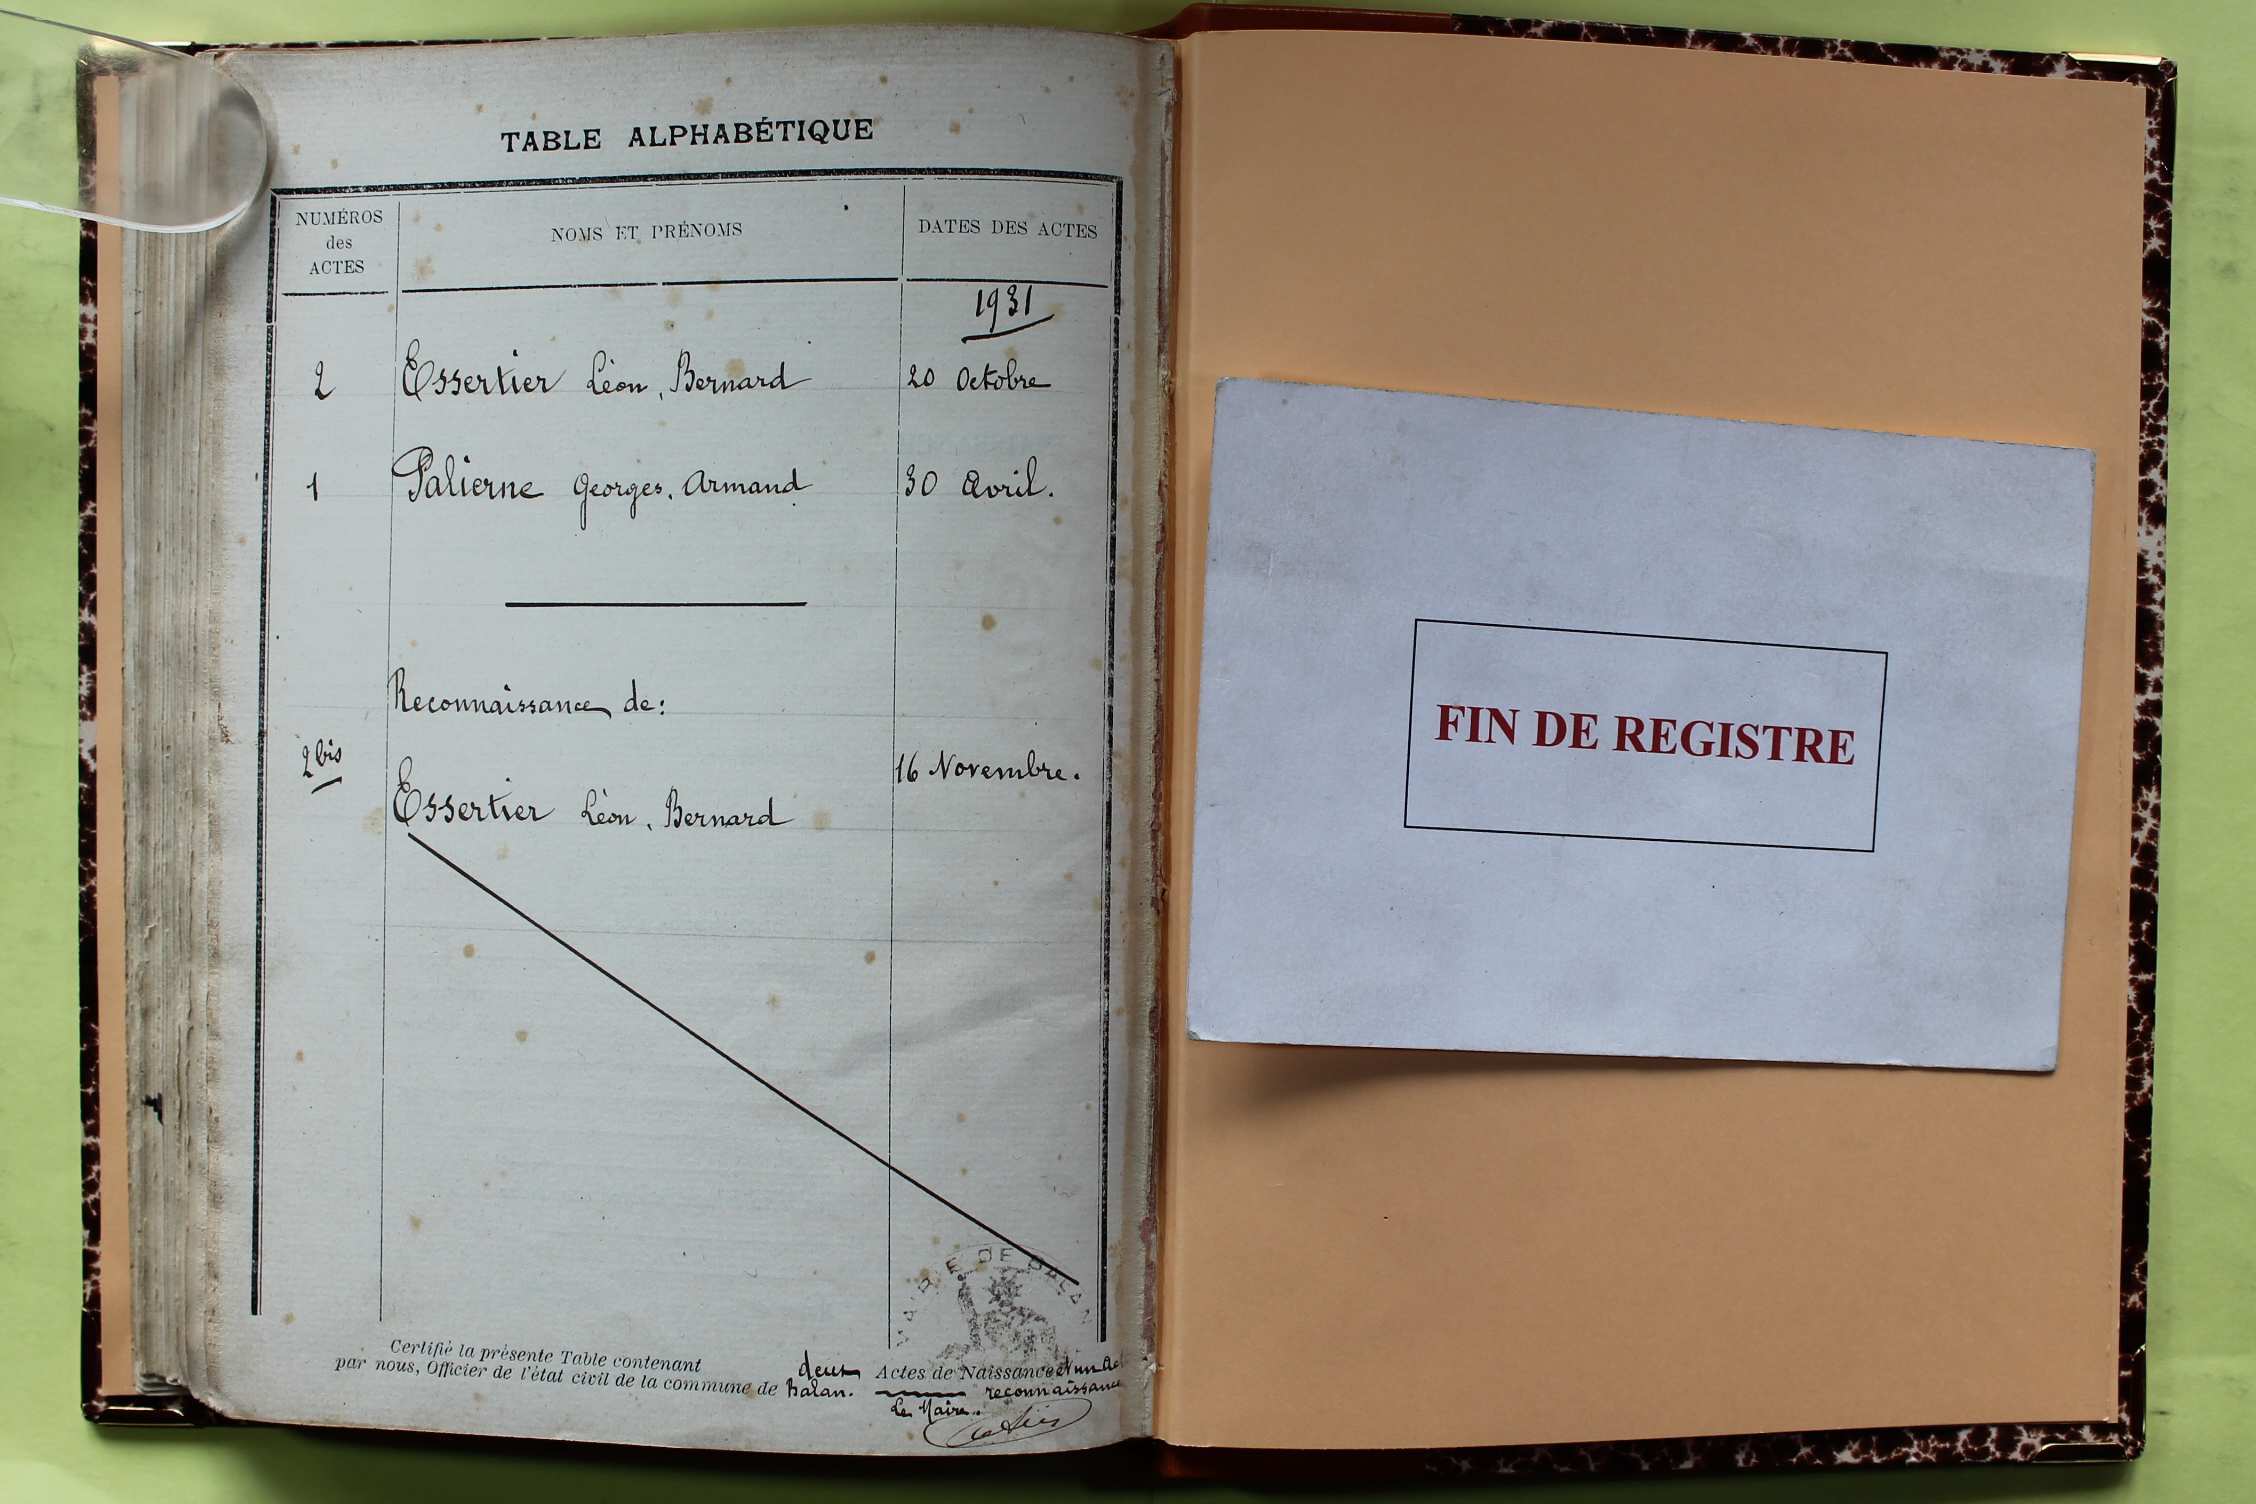 TABLE ALPHABÉTIQUE
NUMÉROS
des
ACTES
NOMS ET PRÉNOMS
DATES DES ACTES
1931
2 Essertier Léon, Bernard 20 Octobre
1 Palierne Georges, Armand 30 Avril.
Reconnaissance de:
2 bis 16 Novembre.
Essertier Léon, Bernard
MAIRIE DE BALAN
Certifié la présente Table contenant deux Actes de Naissance et un
par nous, Officier de l'état civil de la commune de Balan. reconnaissance
Le Maire.
FIN DE REGISTRE